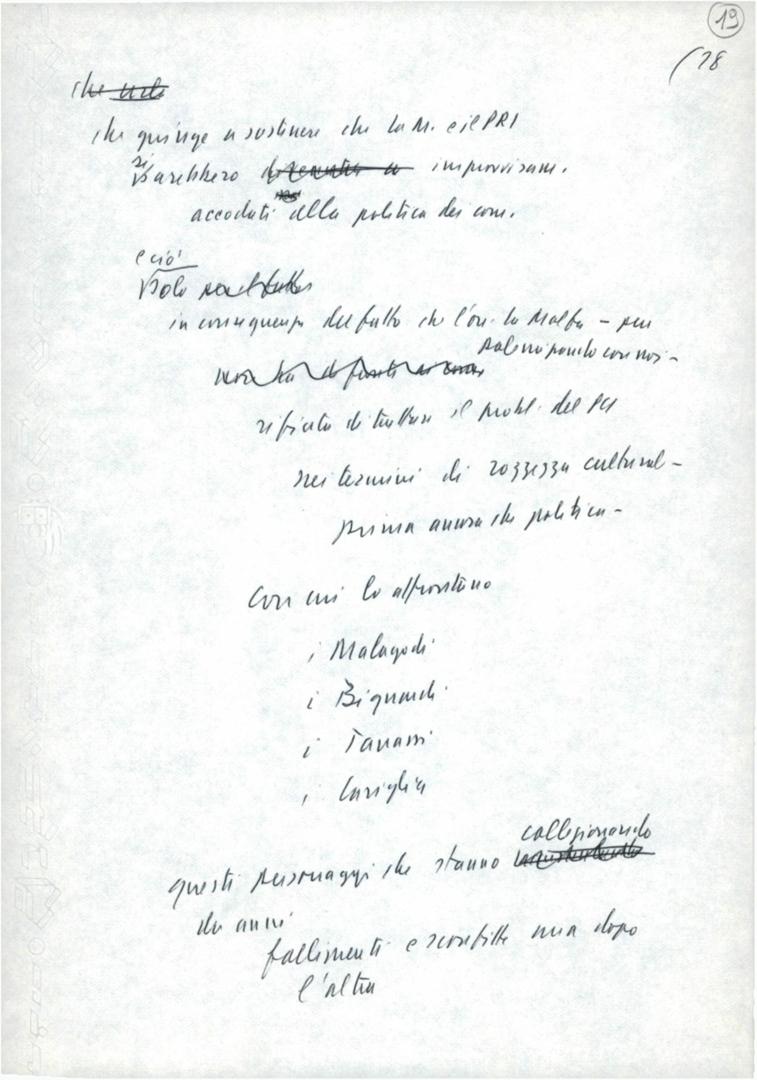 19
(18
che
che giunge a sostenere che La M. e il PRI
si
sarebbero improvvisam.
accodati alla politica dei com.
e ciò
solo
in conseguenza del fatto che l'on. La Malfa – pur
polemizzando con noi –
rifiuta di trattare il probl. del PCI
nei termini di rozzezza cultural –
prima ancora che politica –
Con cui lo affrontano
i Malagodi
i Bignardi
i Tanassi
i Cariglia
collezionando
questi personaggi che stanno
da anni
fallimenti e sconfitte una dopo
l'altra